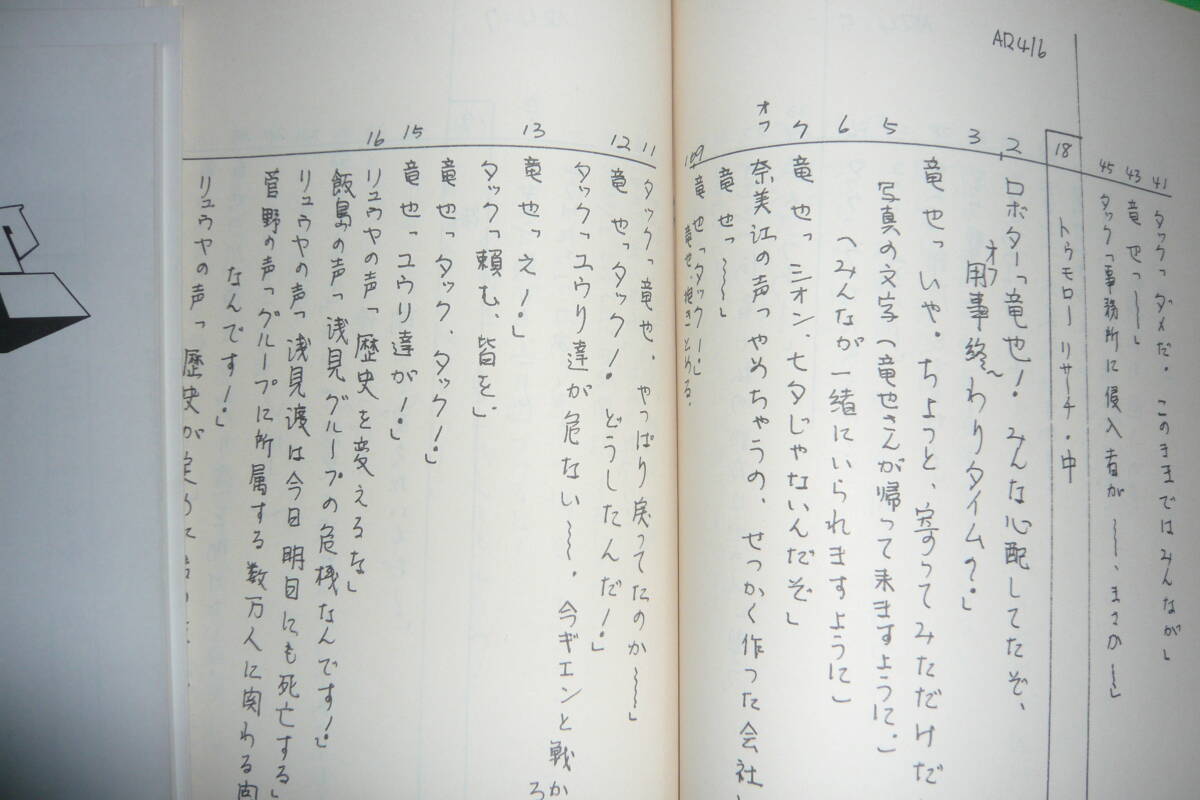 AR416
41 タック「ダメだ。このままではみんなが」
43 竜也「〜〜」
45 タック「事務所に侵入者が〜〜、まさか〜」
18 トゥモローリサーチ・中
2 ロボター「竜也!みんな心配してたぞ、
オフ
3 用事終〜わりタイム?」
竜也「いや。ちょっと、寄ってみただけだ
5 写真の文字(竜也さんが帰って来ますように。)
6 (みんなが一緒にいられますように)
7 竜也「シオン、七夕じゃないんだぞ」
オフ 奈美江の声「やめちゃうの、せっかく作った会社
竜也「〜〜〜」
竜也「タック!」
11 タック「竜也、やっぱり戻ってたのか〜〜」
12 竜也「タック!どうしたんだ!」
タック「ユウリ達が危ない〜〜、今ギエンと戦か
13 竜也「え!」
タック「頼む、皆を」
竜也「タック、タック!」
15 竜也「ユウリ達が!」
16 リュウヤの声「歴史を変えるな」
飯島の声「浅見グループの危機なんです!」
リュウヤの声「浅見渡は今日明日にも死亡する」
菅野の声「グループに所属する数万人に関わる
なんです!」
リュウヤの声「歴史が